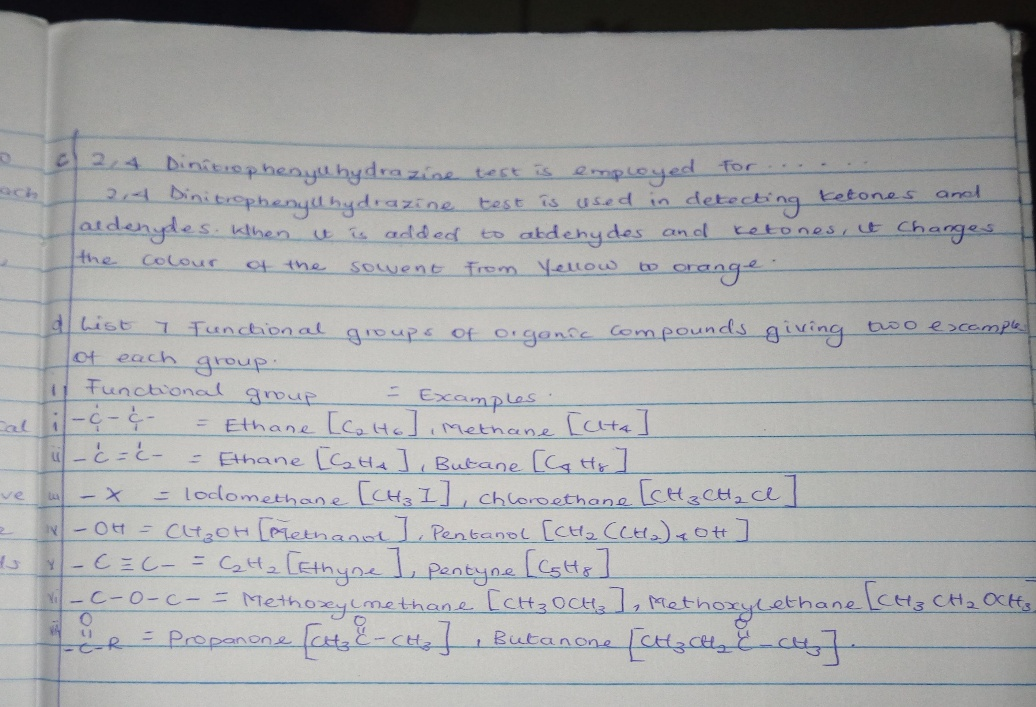 c) 2,4 Dinitrophenylhydrazine test is employed for ......
ach 2,4 Dinitrophenylhydrazine test is used in detecting ketones and
aldehydes. When it is added to aldehydes and ketones, it changes
the colour of the solvent from Yellow to orange.
d) List 7 Functional groups of organic compounds giving two example
of each group.
Functional group = Examples.
cal i -C-C- = Ethane [C2H6], Methane [CH4]
ii -C=C- = Ethane [C2H4], Butane [C4H8]
ve iii -X = Iodomethane [CH3I], Chloroethane [CH3CH2Cl]
iv -OH = CH3OH [Methanol], Pentanol [CH2(CH2)4OH]
ls v -C≡C- = C2H2 [Ethyne], Pentyne [C5H8]
vi -C-O-C- = Methoxylmethane [CH3OCH3], Methoxylethane [CH3CH2OCH3
O O O
vii -C-R = Propanone [CH3C-CH3], Butanone [CH3CH2C-CH3].